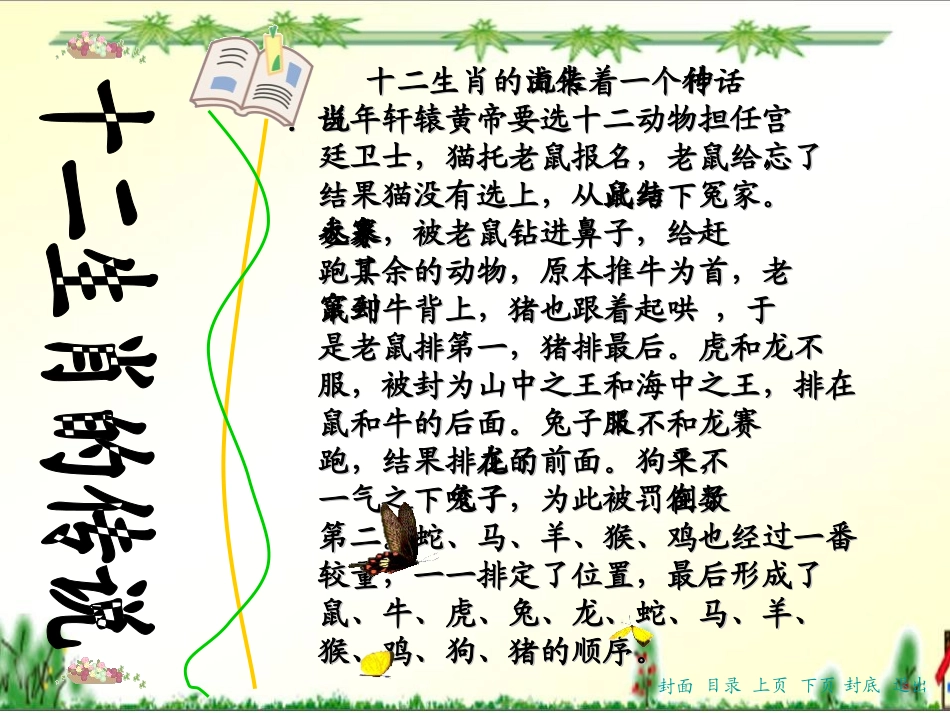 十二生肖的传说
十二生肖的着一个神话
年轩辕黄帝要选十二动物担任宫
廷卫士，猫托老鼠报名，老鼠给忘了
结果猫没有选上，从结下冤家。
，被老鼠钻进鼻子，给赶
跑其余的动物，原本推牛为首，老
牛背上，猪也跟着起哄 ，于
是老鼠排第一，猪排最后。虎和龙不
服，被封为山中之王和海中之王，排在
鼠和牛的后面。兔子不和龙赛
跑，结果排在的前面。狗不
一气之下兔子，为此被罚倒数
第二。蛇、马、羊、猴、鸡也经过一番
较量，一一排定了位置，最后形成了
鼠、牛、虎、兔、龙、蛇、马、羊、
猴、鸡、狗、猪的顺序。
封面 目录 上页 下页 封底 退出